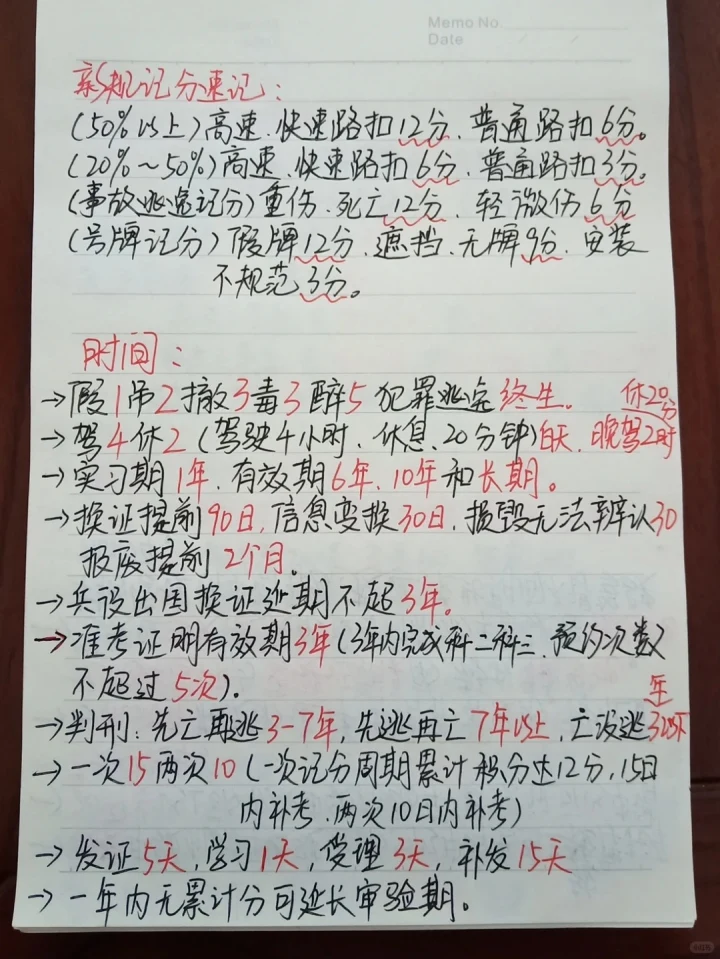 Memo No.
Date
新规记分速记:
(50%以上)高速、快速路扣12分、普通路扣6分。
(20%~50%)高速、快速路扣6分、普通路扣3分。
(事故逃逸记分)重伤、死亡12分、轻微伤6分
(号牌记分)假牌12分、遮挡、无牌9分、安装
不规范3分。
时间:
→假1吊2撤3毒3醉5 犯罪逃逸终生。 休20分
→驾4休2(驾驶4小时、休息、20分钟)白天、晚驾2时
→实习期1年、有效期6年、10年和长期。
→换证提前90日,信息变换30日、损毁无法辨认30
报废提前2个月。
→兵役出国换证延期不起3年。
→准考证明有效期3年(3年内完成科二科三、预约次数
不起过5次)。
→判刑:先亡再逃3-7年,先逃再亡7年以上,亡没逃3年以下
→一次15两次10(一次记分周期累计积分达12分,15日
内补考、两次10日内补考)
→发证5天,学习1天,受理3天,补发15天
→一年内无累计分可延长审验期。
小红书